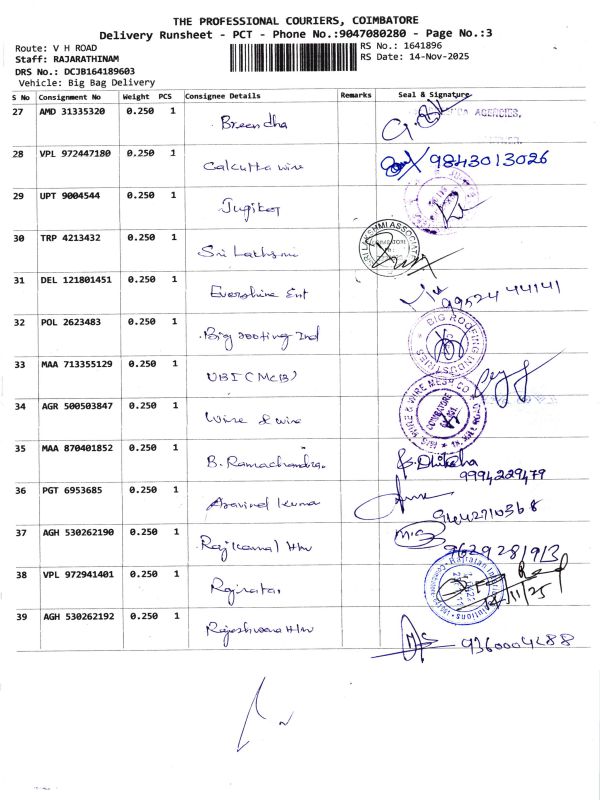 THE PROFESSIONAL COURIERS, COIMBATORE
Delivery Runsheet - PCT - Phone No.:9047080280 - Page No.:3
Route: V H ROAD
Staff: RAJARATHINAM
DRS No.: DCJB164189603
Vehicle: Big Bag Delivery
RS No.: 1641896
RS Date: 14-Nov-2025
S No Consignment No Weight PCS Consignee Details Remarks Seal & Signature
27 AMD 31335320 0.250 1 Breendha AGENCIES,
28 VPL 972447180 0.250 1 Calcutta wire 9843013026
29 UPT 9004544 0.250 1 Jugitor
30 TRP 4213432 0.250 1 Sri Lakhsmi SRI LAKSHMI ASSOCIATES
31 DEL 121801451 0.250 1 Evershine Ent 99524 44141
32 POL 2623483 0.250 1 Big rooting Ind BIG ROOFING INDUSTRIES
33 MAA 713355129 0.250 1 UBI (McB)
34 AGR 500503847 0.250 1 Wire & wire WIRE & WIRE MESH CO COIMBATORE
35 MAA 870401852 0.250 1 B. Ramachandra. 9994229479
36 PGT 6953685 0.250 1 Aravind Kumar
37 AGH 530262190 0.250 1 Raj Kamal Hw 9629281913
38 VPL 972941401 0.250 1 Rajratan 14/11/25
39 AGH 530262192 0.250 1 Rajeshwara Hw 9360004688